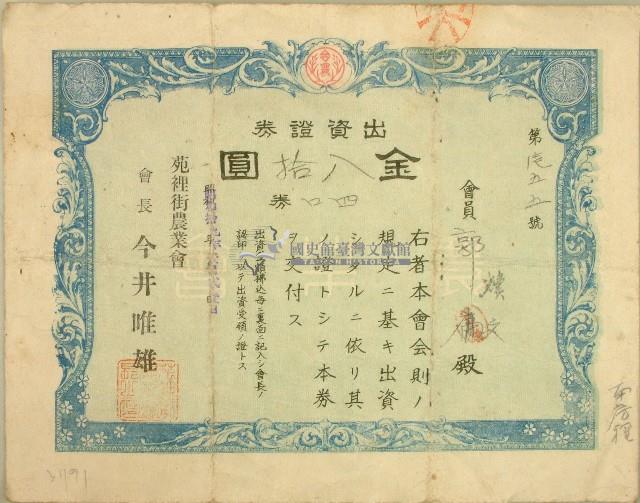 出資證券
金八拾圓
四口券
第 五五號
會員 郭 殿
右者本會会則ノ
規定ニ基キ出資
シタルニ依リ其
ノ證トシテ本券
ヲ交付ス
出資ノ拂込每ニ裏面ニ記入シ會長ノ
認印ヲ以テ出資受領ノ證トス
苑裡街農業會
會長 今井唯雄
國史館臺灣文獻館
TAIWAN HISTORICA